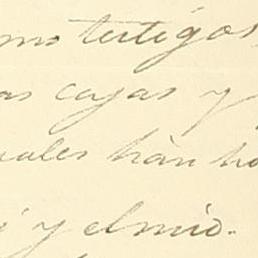 mo testigos,
as cajas y
uales hàn ha
i y el mio.